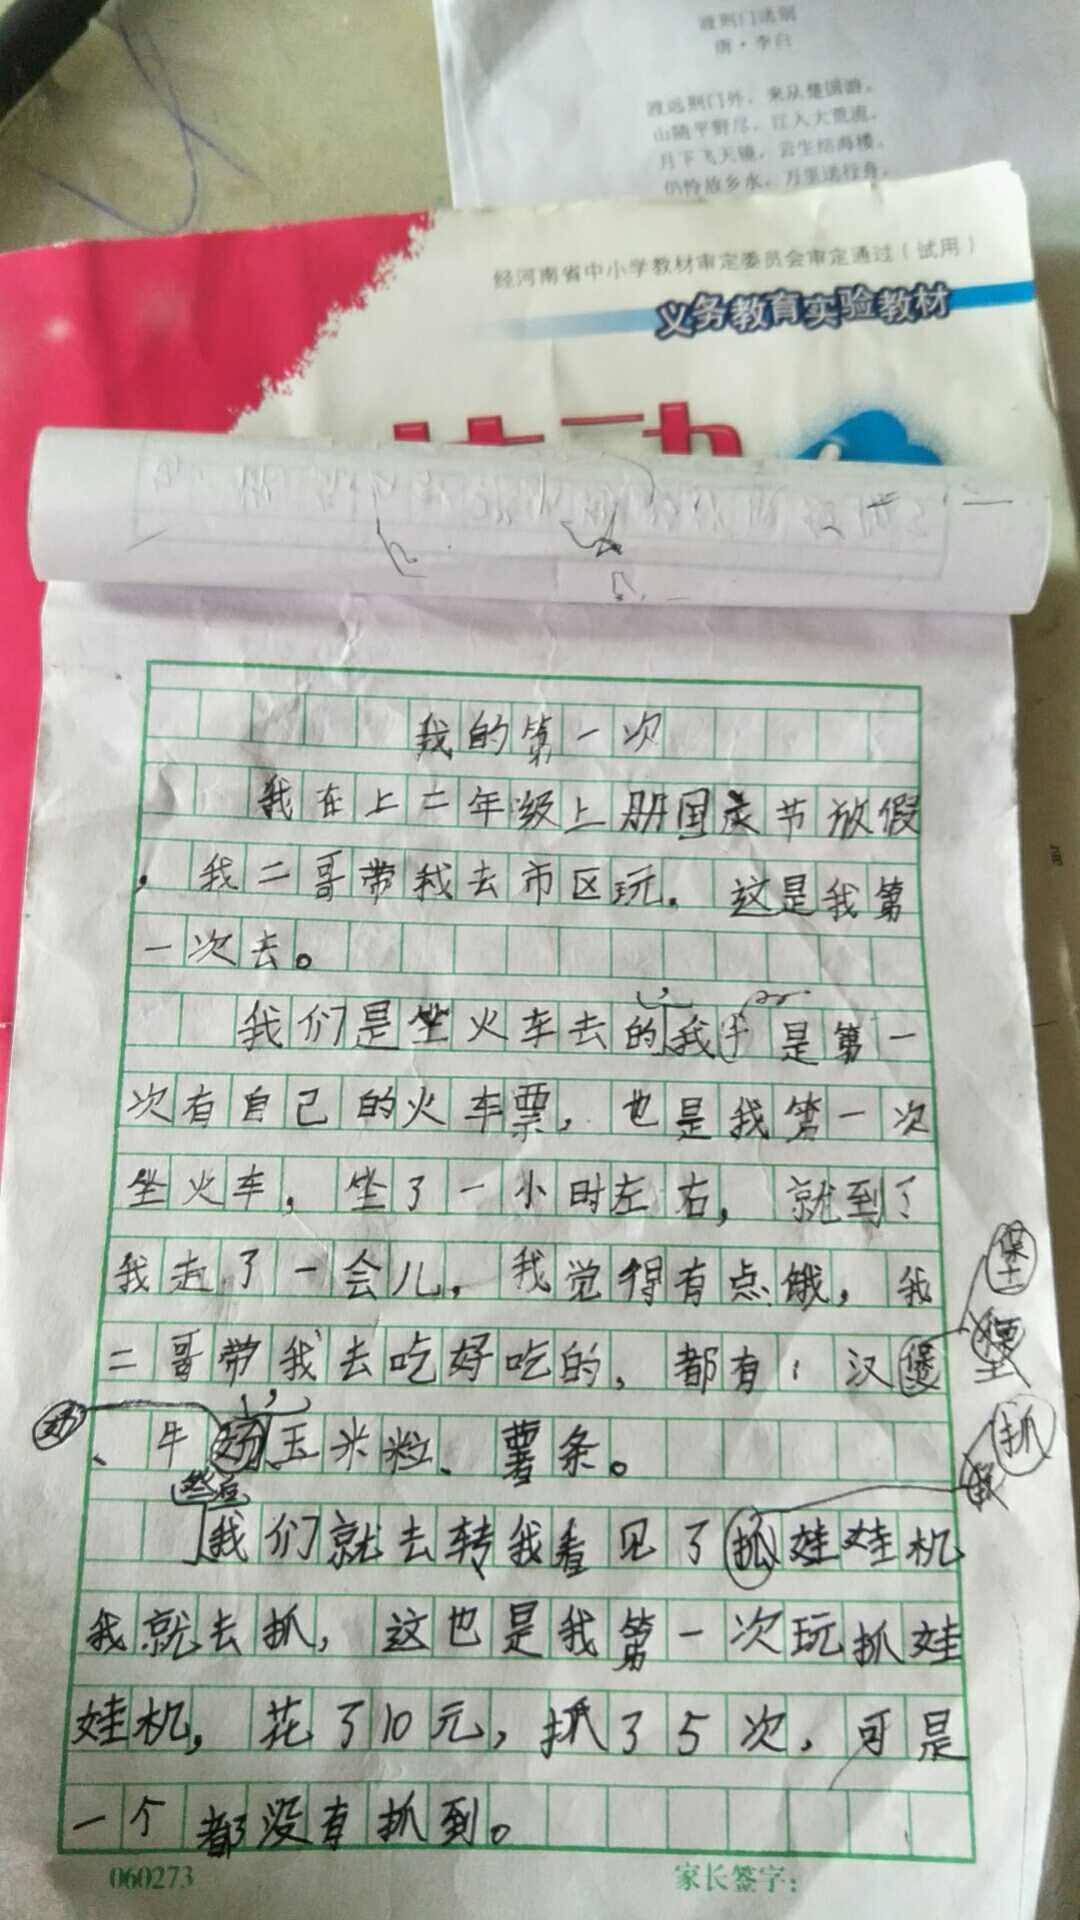 渡荆门送别
唐·李白
渡远荆门外，来从楚国游。
山随平野尽，江入大荒流。
月下飞天镜，云生结海楼。
仍怜故乡水，万里送行舟。
经河南省中小学教材审定委员会审定通过（试用）
义务教育实验教材
我的第一次
我在上二年级上册国庆节放假
，我二哥带我去市区玩。这是我第
一次去。
，
我们是坐火车去的我 是第一
次有自己的火车票，也是我第一次
坐火车，坐了一小时左右，就到了
我走了一会儿，我觉得有点饿，我
堡
二哥带我去吃好吃的，都有：汉堡
奶
、牛奶、玉米粒、薯条。
抓
然后
我们就去转我看见了抓娃娃机
我就去抓，这也是我第一次玩抓娃
娃机，花了10元，抓了5次，可是
一个都没有抓到。
060273
家长签字：